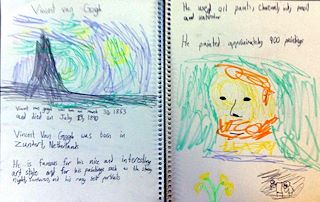 Vincent Van Gogh
Vincent van gogh was born on march 30, 1853
and died in July 29, 1890
Vincent Van Gogh was born in
Zundert, Netherlands
He is famous for his nice and interesting
art style and for his paintings such as the starry
night, and his many self portraits
He used oil paints, charcoal, ink, pencil
and watercolor
He painted approximately 900 paintings